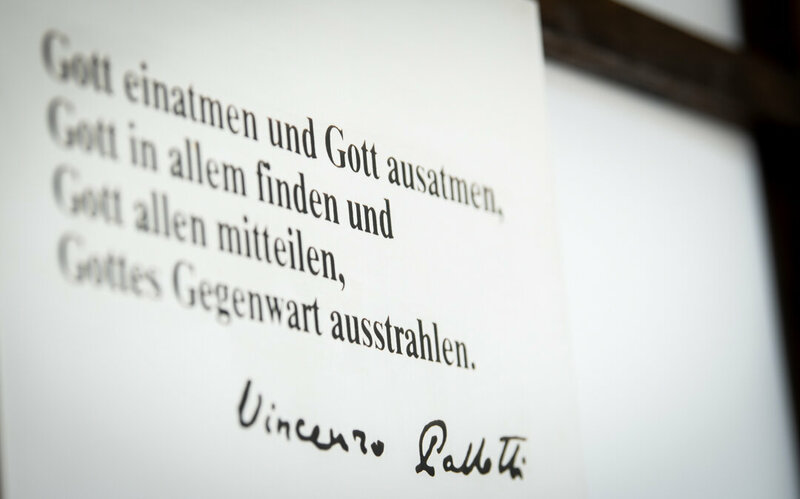 Gott einatmen und Gott ausatmen,
Gott in allem finden und
Gott allen mitteilen,
Gottes Gegenwart ausstrahlen.
Vincenzo Pallotti